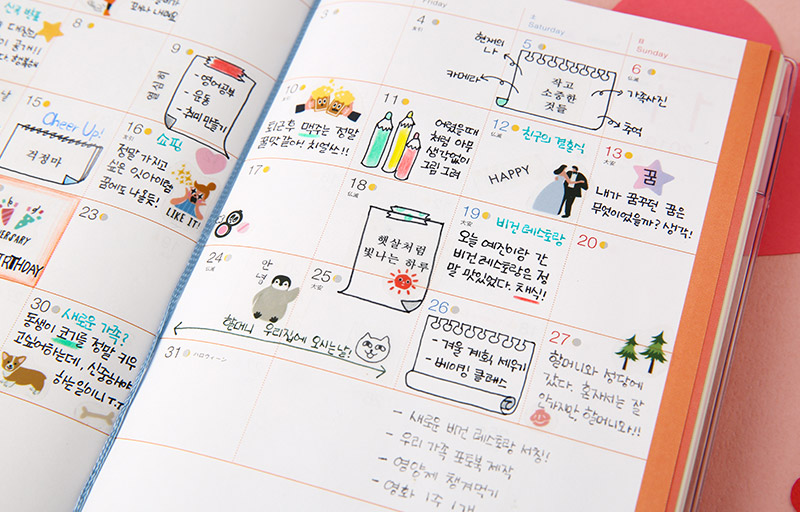 8
9
열심히
- 영어공부
- 운동
- 취미 만들기
15
Cheer Up!
걱정마
16
쇼핑
정말 가지고
싶은 잇아이템
꿈에도 나올듯!
LIKE IT!
23
30
새로운 가족?
동생이 코기를 정말 키우
고싶어하는데, 신중해야
하는일이니 T.T
Friday
Saturday
Sunday
3
4
현재의
나
카메라
5
작고
소중한
것들
6
가족사진
추억
10
퇴근후 맥주는 정말
꿀맛같아! 치얼쓰!!
11
어렸을때
처럼 아무
생각없이
그림 그려
12
친구의 결혼식
HAPPY
13
꿈
내가 꿈꾸던 꿈은
무엇이었을까? 생각!
17
18
햇살처럼
빛나는 하루
19
비건 레스토랑
오늘 예진이랑 간
비건 레스토랑은 정
말 맛있었다. 채식!!
20
24
안녕
25
할머니 우리집에 오시는날!
26
- 겨울 계획 세우기
- 베이킹 클래스
27
할머니와 성당에
갔다. 혼자서는 잘
안가지만, 할머니와!!
31
ハロウィーン
- 새로운 비건 레스토랑 서칭!
- 우리 가족 포토북 제작
- 영양제 챙겨먹기
- 영화 1주 1개